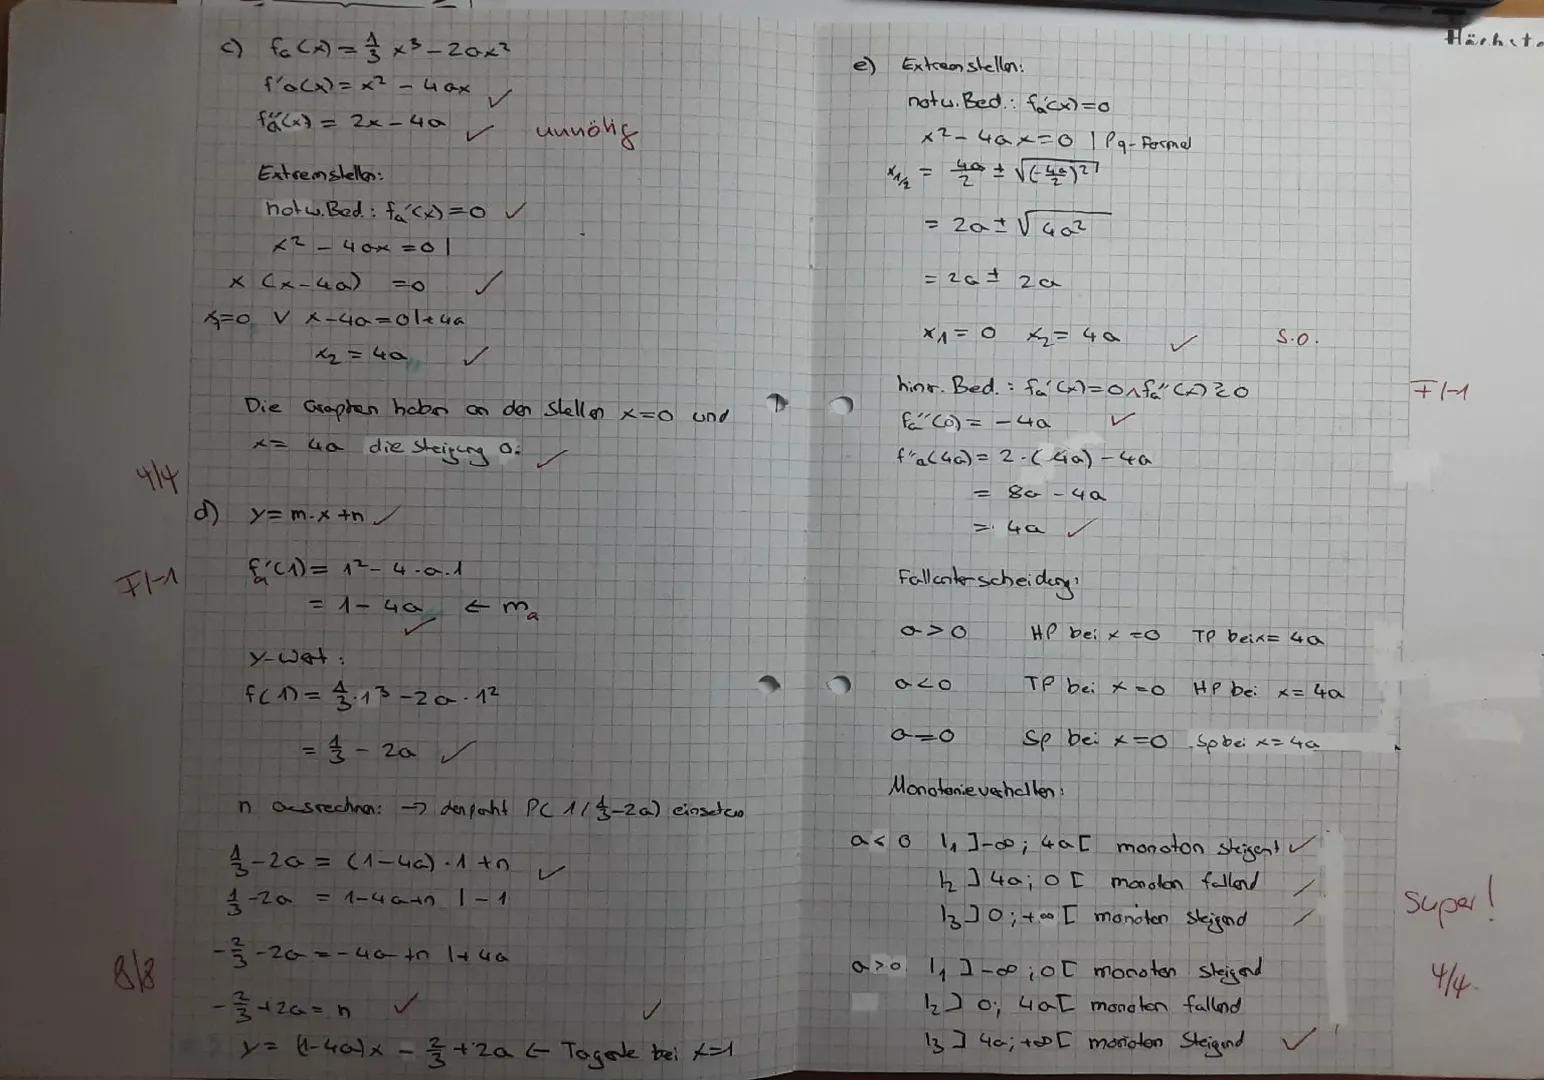 c) fₐ(x) = 1/3 x³ − 2ax²
f'ₐ(x) = x² − 4ax ✓
fₐ''(x) = 2x − 4a ✓ unnötig
Extremstellen:
notw. Bed.: fₐ'(x) = 0 ✓
x² − 4ax = 0 |
x (x − 4a) = 0 ✓
x₁=0 ∨ x − 4a = 0 |+4a
x₂ = 4a ✓
Die Graphen haben an den Stellen x=0 und
x = 4a die Steigung 0. ✓
4/4
d) y = m·x + n ✓
F/-1
fₐ'(1) = 1² − 4·a·1
= 1 − 4a ← mₐ
✓
y-Wert:
f(1) = 1/3·1³ − 2a·1²
= 1/3 − 2a ✓
n ausrechnen: → den Punkt P(1/1/3−2a) einsetzen
1/3 − 2a = (1−4a)·1 + n ✓
1/3 − 2a = 1−4a+n |−1
−2/3 − 2a = −4a + n |+4a
8/8
−2/3 + 2a = n ✓ ✓
y = (1−4a)x − 2/3 + 2a ← Tangente bei x=1
Höchste
e) Extremstellen:
notw. Bed.: fₐ'(x) = 0
x² − 4ax = 0 | Pq-Formel
x₁/₂ = 4a/2 ± √(−4a/2)²
= 2a ± √4a²
= 2a ± 2a
x₁ = 0 x₂ = 4a ✓ s.o.
hinr. Bed.: fₐ'(x) = 0 ∧ fₐ''(x) ≷ 0 F/-1
fₐ''(0) = −4a ✓
f''ₐ(4a) = 2·(4a) − 4a
= 8a − 4a
= 4a ✓
Fallunterscheidung:
a > 0 HP bei x=0 TP bei x= 4a
a < 0 TP bei x=0 HP bei x= 4a
a = 0 SP bei x=0 Sp bei x= 4a
Monotonieverhalten:
a < 0 I₁ ]−∞; 4a[ monoton steigent ✓
I₂ ]4a; 0[ monoton fallend ✓
I₃ ]0; +∞[ monoton steigend ✓
Super!
a > 0 I₁ ]−∞; 0[ monoton steigend
4/4
I₂ ]0; 4a[ monoton fallend
I₃ ]4a; +∞[ monoton steigend ✓